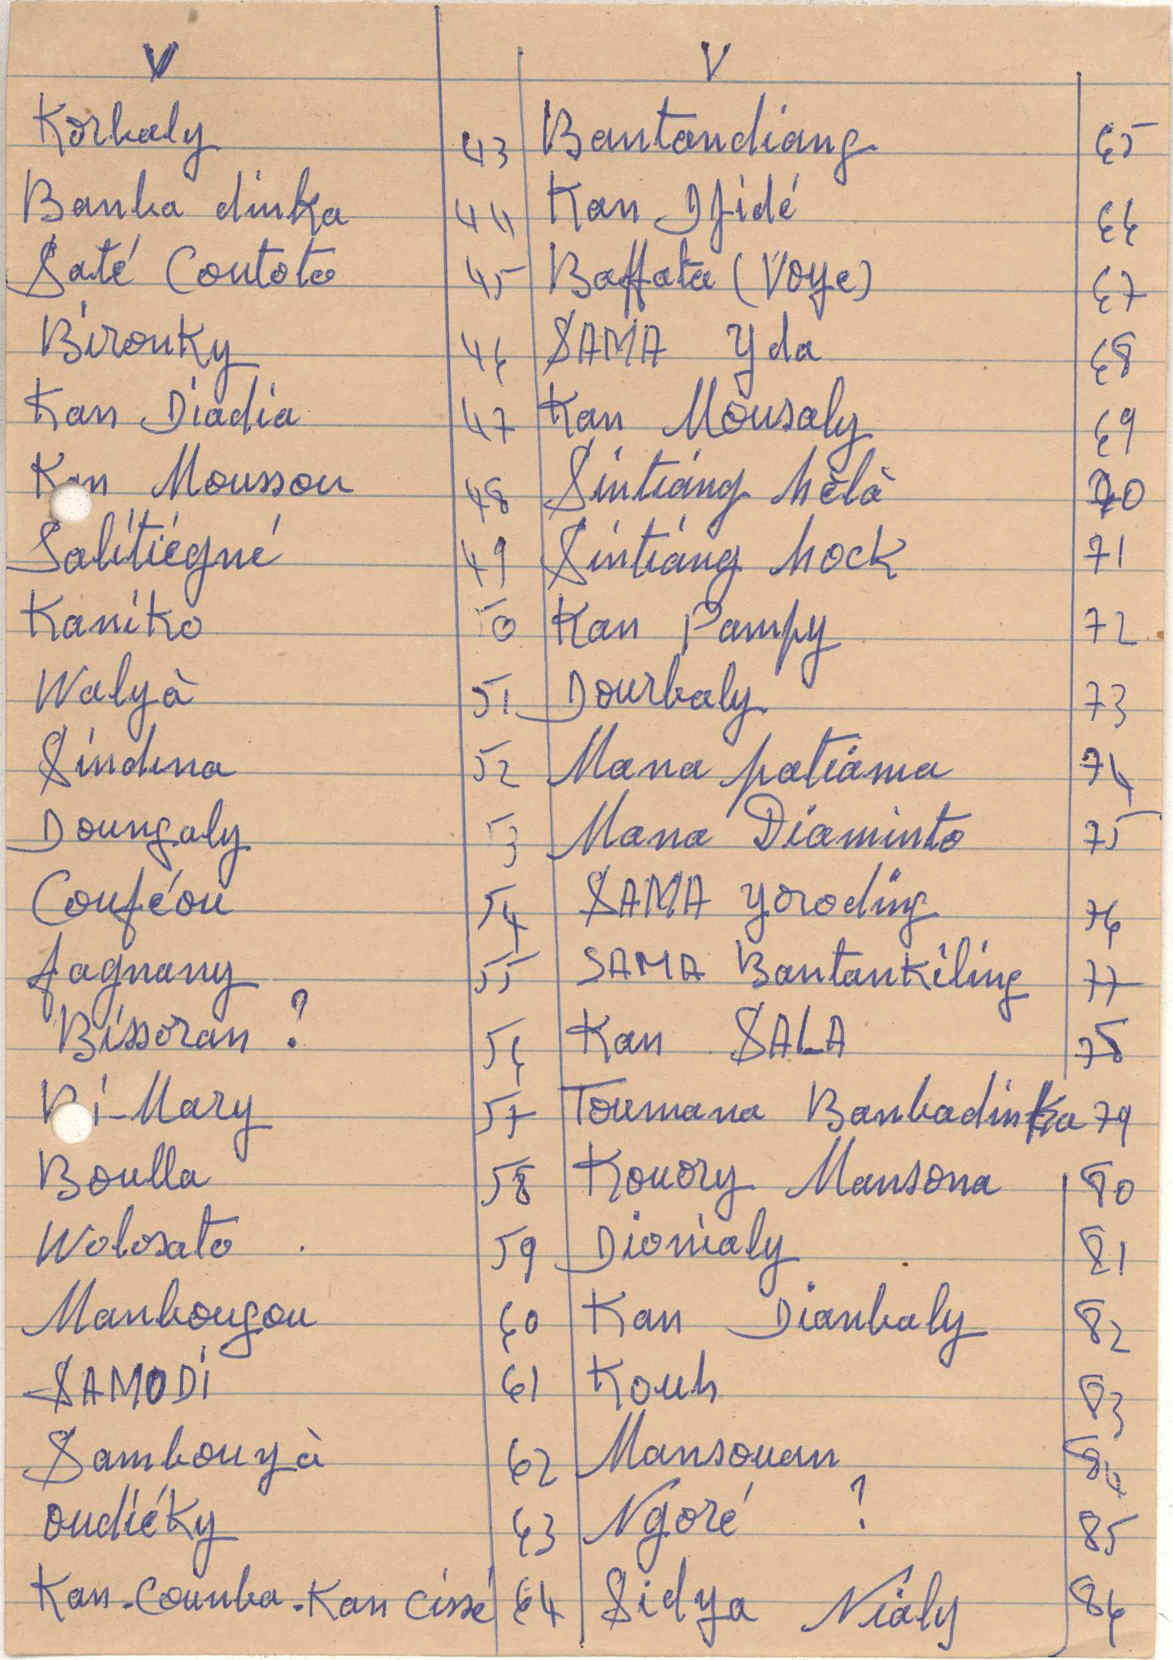 V V
Korbaly 43 Bantandiang 65
Banba dinka 44 Kan Dfidé 66
Saté Coutoto 45 Baffata (Voye) 67
Bironky 46 SAMA Yda 68
Kan Diadia 47 Kan Mousaly 69
Kan Moussou 48 Sintiang hèlà 70
Salitiégné 49 Sintiang hock 71
Kaniko 50 Kan Pampy 72
Walyà 51 Dourbaly 73
Sindina 52 Mana patiama 74
Doungaly 53 Mana Diaminto 75
Couféou 54 SAMA yoroding 76
fagnany 55 SAMA Bantankiling 77
Bissoran ? 56 Kan SALA 78
Bi-Mary 57 Toumana Banbadinka 79
Boulla 58 Kouory Mansona 80
Wolosato 59 Dionialy 81
Manbougou 60 Kan Dianbaly 82
SAMODI 61 Kouh 83
Sambouyà 62 Mansouan 84
oudiéky 63 Ngoré ? 85
Kan-Counba-Kan Cissé 64 Sidya Nialy 86